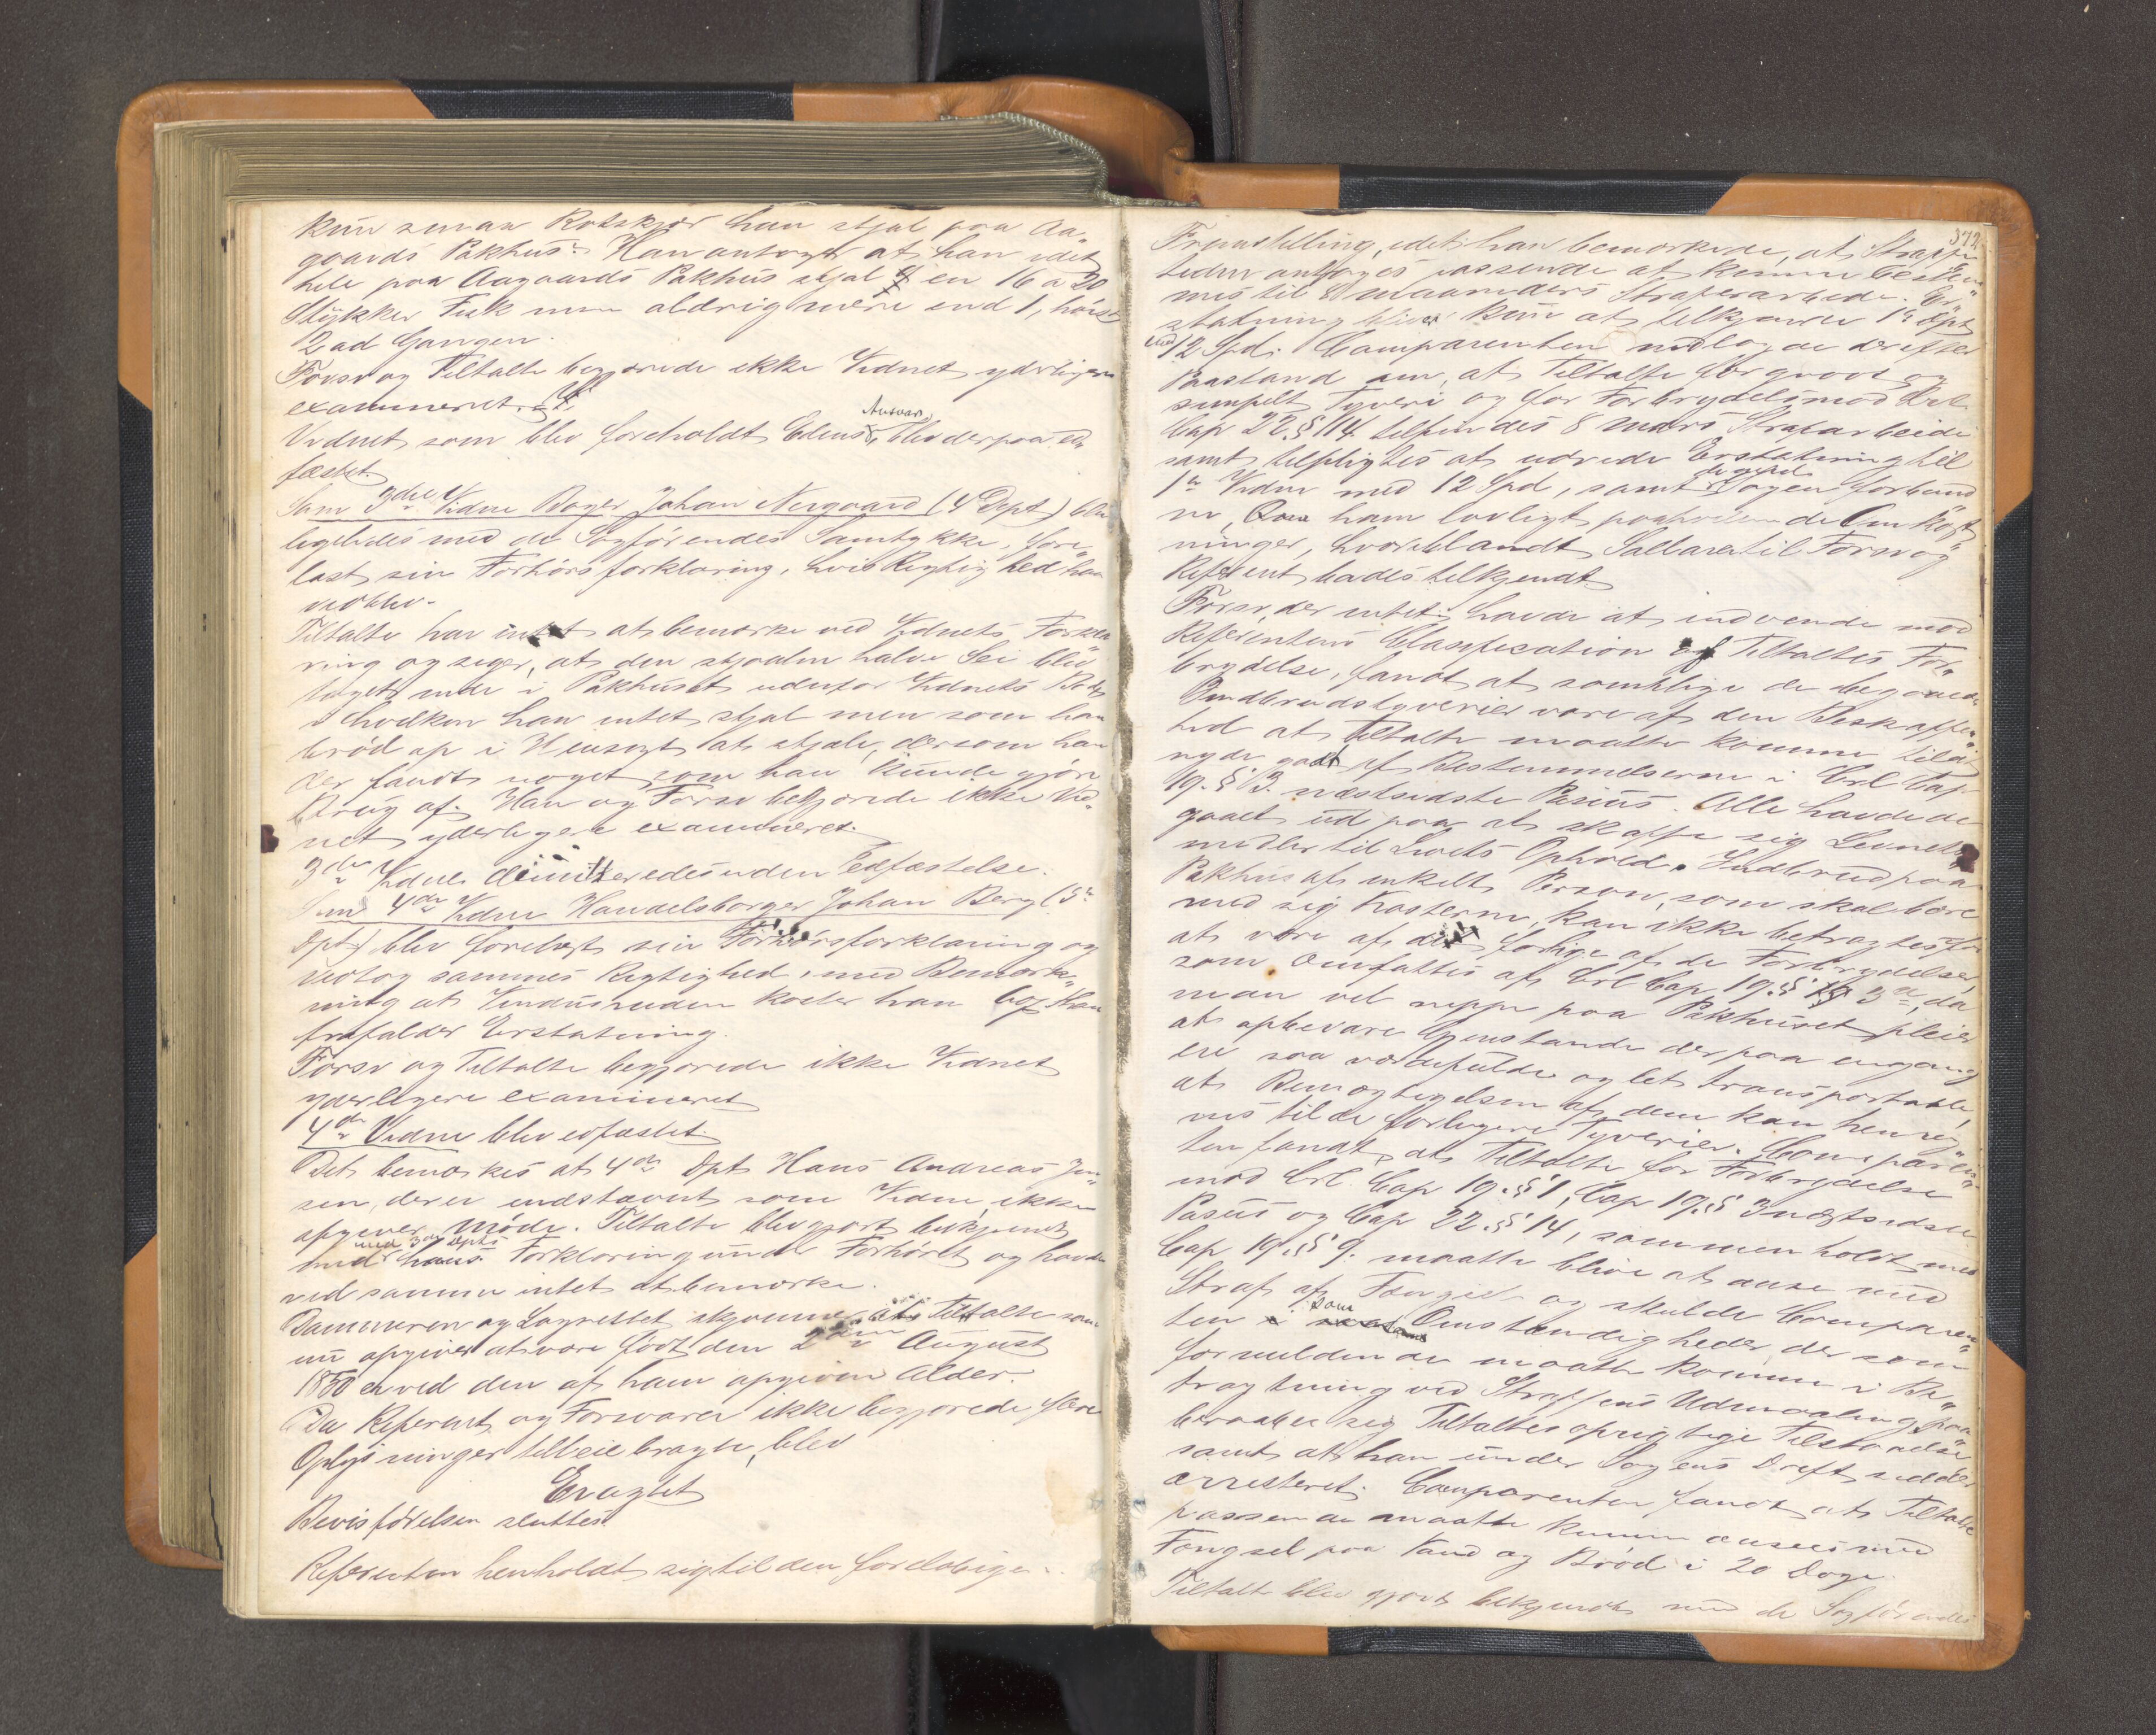 kun smaa Rotskjær han stjal paa Aa„
gaards Pakhus. Han antog at han idet
hele paa Aagaards Pakhus stjal en 16 a 20
Stykker Fisk men aldrig mere end 1, høist
2 ad Gangen.
Forsv og Tiltalte begjærede ikke Vidnet yderligere
examineret.
Vidnet som blev foreholdt Edens Ansvar, blev derpaa ed
fæstet.
Som 3die Vidne Bager Johan Nergaard (4 Dpt) blev
ligeledes med de Sagførendes Samtykke, fore„
læst sin Forhørsforklaring, hvis Rigtighed han
vedblev.
Tiltalte har intet at bemærke ved Vidnets Forkla„
ring og siger, at den stjaalne halve Sei blev
taget inde i Pakhuset udenfor Vidnets Bod
i hvilken han intet stjal men som han
brød op i Hensigt at stjæle, dersom han
der fandt noget som han kunde gjøre
Brug af. Han og Forsv begjærede ikke Vid„
net yderligere examineret.
3die Vidne demitteredes uden Edfæstelse.
Som 4de Vidne Handelsborger Johan Berg (5te
Dpt) blev forelæst sin Forhørsforklaring og
vedtog sammes Rigtighed, med Bemærk„
ning at Vinduesruden koster ham 60 Han
frafalder Erstatning.
Forsv og Tiltalte begjærede ikke Vidnet
yderligere examineret
4de Vidne blev edfæstet.
Det bemærkes at 4de Dpt Hans Andreas Jen„
sen, der er indstævnt som Vidne, ikke
afgiver Møde. Tiltalte blev gjort bekjendt
med 3die Dpts
med hans Forklaring under Forhøret og havde
ved samme intet at bemærke.
Dommeren og Lagrettet skjønner at Tiltalte som
nu opgiver at være født den 2den August
1850 er ved den af ham opgivne Alder.
Da Referent og Forsvarer ikke begjærede flere
Oplysninger tilveiebragte, blev
Eragtet
Bevisførelsen sluttes.
Referenten henholdt sig til den foreløbige
372
Fremstilling, idet han bemærkede, at Straffe
tiden antages passende at kunne bestem„
mes til 8 maaneders Strafarbeide. Er„
statning bliver kun at tilkjende 1ste Dpt
med 12 Spd. Comparenten nedlagde derefter
Paastand om, at Tiltalte for grovt og
simpelt Tyveri og for Forbrydelse mod Crl.
Cap 22 § 14 tilfindes 8 mdrs Strafarbeide
samt tilpligtes at udrede Erstatning til
1ste Vidne med 12 Spd, samt de med Sagen forbund
ne, ham lovligt paahvilende Omkost„
ninger, hvoriblandt Sallarer til Forsv og
Referent bades tilkjendt
Forsv, der intet havde at indvende mod
Referentens Clasification af Tiltaltes For„
brydelse, fandt at samtlige de begaaede
Indbrudstyverier vare af den Beskaffen„
hed at Tiltalte maatte komme til at
nyde godt af Bestemmelserne i Crl Cap
19. § 3. næstsidste Passus. Alle havde de
gaaet ud paa at skaffe sig Levnets„
midler til Livets Ophold. Indbrud paa
Pakhus af enkelt Person, som skal bære
med sig Kosterne, kan ikke betragtes for
at være af de farlige af de Forbrydelser,
som omfattes af Crl Cap 19. § 3die, da
man vel neppe paa Pakhuset pleier
at opbevare Gjenstande der paa engang
ere saa værdifulde og let transportable,
at Bemægtigelsen af dem kan henreg„
nes til de farligere Tyverier. Comparen„
ten fandt, at Tiltalte for Forbrydelse
mod Crl. Cap 19. § 1, Cap 19. § 3 næstsidste
Passus og Cap 22. § 14, sammenholdt med
Cap 19. § 9. maatte blive at anse med
Straf af Fængsel og skulde Comparen„
ten som Omstændigheder, der som
formildende maatte komme i Be„
tragtning ved Straffens Udmaaling, paa„
beraabe sig Tiltaltes oprigtige Tilstaaelse
samt at han under Sagens Drift sidder
arresteret. Comparenten fandt at Tiltalte
passende maatte kunne ansees med
Fængsel paa Vand og Brød i 20 Dage.
Tiltalte blev gjort bekjendt med de Sagførendes